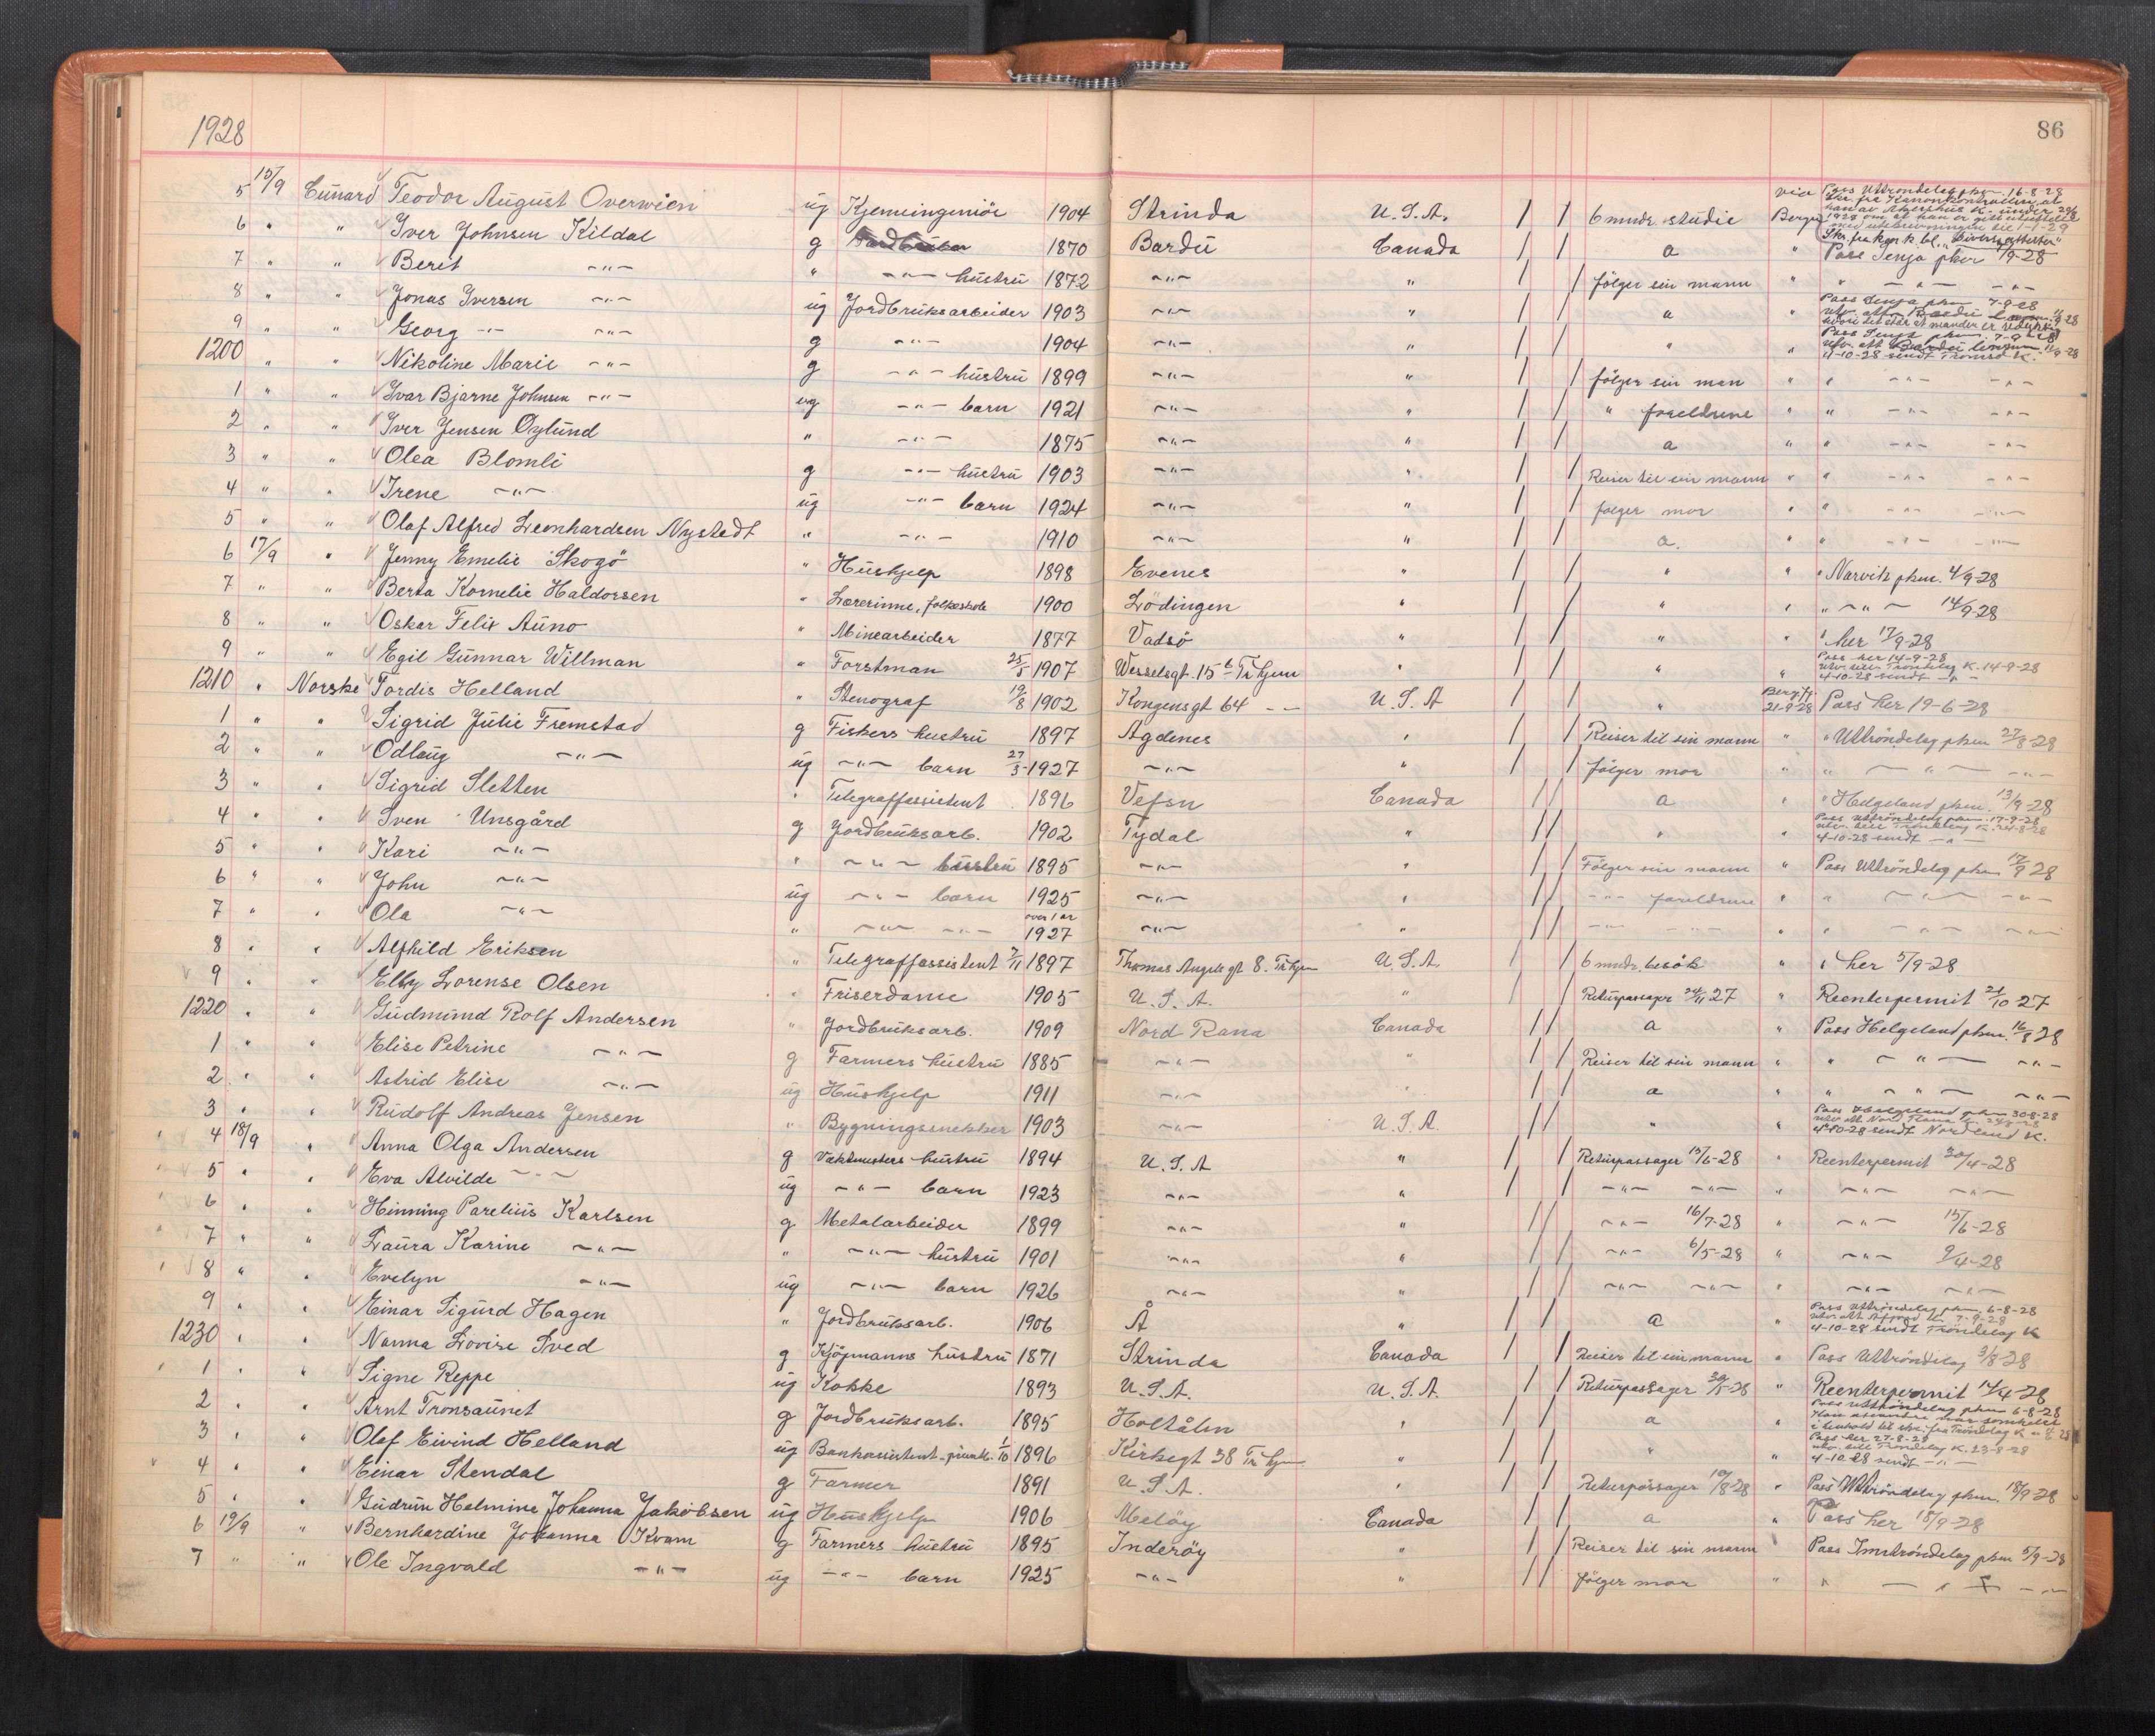 1928
86
5 15/9 Cunard Teodor August Overwien ug Kjemiingeniör 1904 Strinda U.S.A. 6 mndr. studie via Bergen Pass Uttröndelag pkm. 16-8-28
6 " " Iver Johnsen Kildal g 1870 Bardu Canada a " Pass Senja pkm 7/9-28
7 " " Beret -"- " -"- hustru 1872 -"- " fölger sin mann " " -"- -"-
8 " " Jonas Iversen -"- ug Jordbruksarbeider 1903 -"- " a " Pass Senja pkm 7-9-28
9 " " Georg -"- -"- g -"- 1904 -"- " " " Pass Senja pkm. 7-9-28
4-10-28 sendt Tromsö K.
1200 " " Nikoline Marie -"- g -"- hustru 1899 -"- " fölger sin man " " -"- -"-
1 " " Ivar Bjarne Johnsen -"- ug -"- barn 1921 -"- " " foreldrene " " -"- -"-
2 " " Iver Jensen Öylund " -"- 1875 -"- " a " " -"- -"-
3 " " Olea Blomli g -"- hustru 1903 -"- " Reiser til sin mann " " -"- -"-
4 " " Irene -"- ug -"- barn 1924 -"- " fölger mor " " -"- -"-
5 " " Olaf Alfred Leonhardsen Nystedt " -"- 1910 -"- " a. " " -"- -"-
6 17/9 " Jenny Emelie Skogö " Hushjelp 1898 Evenes " " " " Narvik pkm. 4/9-28
7 " " Berta Kornelie Haldorsen " Lærerinne, folkeskole 1900 Lödingen " " " " -"- 14/9-28
8 " " Oskar Felix Auno " Minearbeider 1877 Vadsö " " " " her 17/9-28
9 " " Egil Gunnar Willman " Forstman 25/5 1907 Wesselsgt. 15 b Tr.hjem " " " Pass her 14-9-28
utv. till. Tröndelag K. 14-9-28
4-10-28 sendt -"-
1210 " Norske Tordis Helland " Stenograf 19/8 1902 Kongensgt 64 -"- U.S.A " Berg.fj. 21-9-28 Pass her 19-6-28
1 " " Sigrid Julie Fremstad g Fiskers hustru 1897 Agdenes " Reiser til sin mann " " Uttröndelag pkm 27/8-28
2 " " Odlaug -"- ug -"- barn 27/3-1927 -"- " fölger mor " " -"- -"-
3 " " Sigrid Sletten " Telegrafassistent 1896 Vefsn Canada a " " Helgeland pkm. 13/9-28
4 " " Sven Unsgård g Jordbruksarb. 1902 Tydal " " " Pass Uttröndelag pkm. 17-9-28
utv. till Tröndelag K. 24-8-28
4-10-28 sendt -"-
5 " " Kari -"- " -"- hustru 1895 -"- " Fölger sin mann " Pass Uttröndelag pkm 17/9 28
6 " " John -"- ug -"- barn 1925 -"- " -"- foreldrene " " -"- -"-
7 " " Ola -"- " -"- -"- over 1 år 1927 -"- " -"- -"- " " -"- -"-
8 " " Alfhild Eriksen " Telegrafassistent 2/11 1897 Thomas Angels gt 8. Tr.hjem U.S.A. 6 mndr. besök " " her 5/9-28
9 " " Elly Lorense Olsen " Friserdame 1905 U.S.A. " Returpassager 24/11 27 " Reenterpermit 21/10 27
1220 " " Gudmund Rolf Andersen " Jordbruksarb. 1909 Nord Rana Canada a " Pass Helgeland pkm. 16/8 28
1 " " Elise Petrine -"- g Farmers hustru 1885 -"- " Reiser til sin mann " " -"- -"-
2 " " Astrid Elise -"- ug Hushjelp 1911 -"- " a " " -"- -"-
3 " " Rudolf Andreas Jensen " Bygningssnekker 1903 -"- U.S.A. " " Pass Helgeland pkm 30-8-28
4-10-28 sendt Nordland K.
4 18/9 " Anna Olga Andersen g Vaktmesters hustru 1894 U.S.A " Returpassager 13/6-28 " Reenterpermit 30/4-28
5 " " Eva Alvilde -"- ug -"- barn 1923 -"- " -"- -"- " -"- -"-
6 " " Hinning Parelius Karlsen g Metalarbeider 1899 -"- " -"- 16/7-28 " -"- 15/6-28
7 " " Laura Karine -"- " -"- hustru 1901 -"- " -"- 6/5-28 " -"- 9/4-28
8 " " Evelyn -"- ug -"- barn 1926 -"- " -"- -"- " -"- -"-
9 " " Einar Sigurd Hagen " Jordbruksarb. 1906 Å " a " Pass Uttröndelag pkm. 6-8-28
4-10-28 sendt Tröndelag K
1230 " " Nanna Lovise Sved g Kjöpmanns hustru 1871 Strinda Canada Reiser til sin mann " Pass Uttröndelag 3/8-28
1 " " Signe Reppe ug Kokke 1893 U.S.A. U.S.A. Returpassager 30/5-28 " Reenterpermit 14/4-28
2 " " Arnt Tronsaunet g Jordbruksarb. 1895 Holtålen " a " Pass Uttröndelag pkm 6-8-28
3 " " Olaf Eivind Helland ug Bankassistent, privatb. 1/10 1896 Kirkegt 38 Tr.hjem " " " Pass her 27-8-28
utv. till Tröndelag K. 23-8-28
4-10-28 sendt -"-
4 " " Einar Stendal g Farmer 1891 U.S.A. " Returpassager 10/8-28 " Pass Uttröndelag pkm. 18/9-28
5 " " Gudrun Helmine Johanna Jakobsen ug Hushjelp 1906 Melöy Canada a " Pass her 18/9-28
6 19/9 " Bernhardine Johanna Kvam g Farmers hustru 1895 Inderöy " Reiser til sin mann " Pass Inntröndelag pkm 5/9-28
7 " " Ole Ingvald -"- ug -"- barn 1925 -"- " fölger mor " " -"- -"-